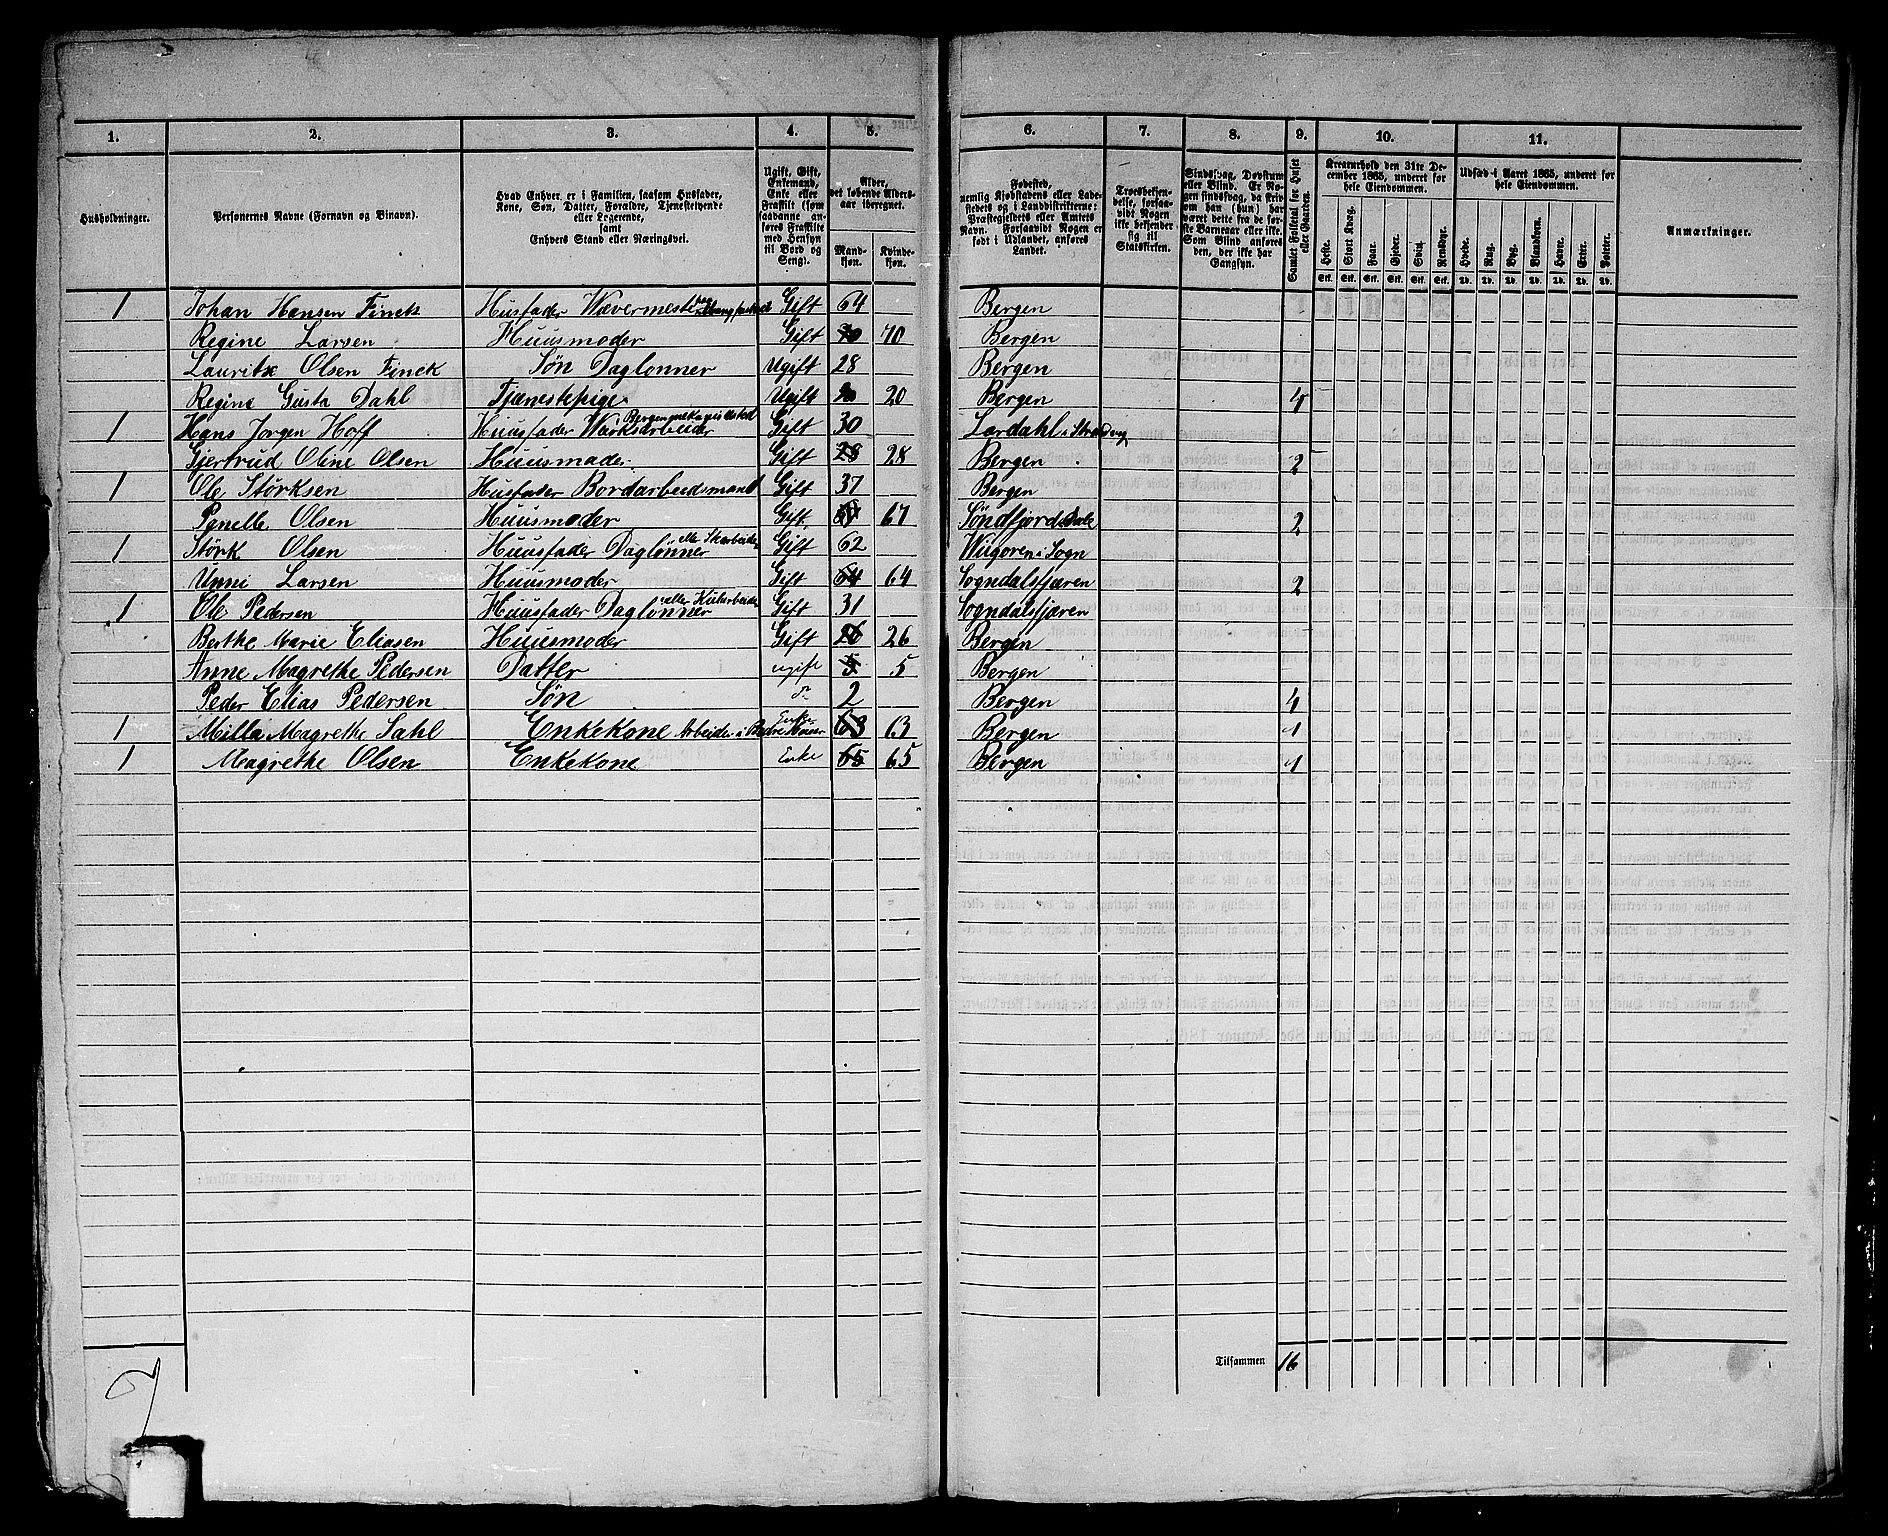 1. 2. 3. 4. 5. 6. 7. 8. 9. 10. 11.
Husholdninger.
Personernes Navne (Fornavn og Binavn).
Hvad Enhver er i Familien, saasom Husfader,
Kone, Søn, Datter, Forældre, Tjenestetyende
eller Logerende,
samt
Enhvers Stand eller Næringsvei.
Ugift, Gift,
Enkemand,
Enke eller
Fraskilt (som
saadanne an-
føres Fraskilte
med Hensyn
til Bord og
Seng).
Alder,
det løbende Alders-
aar iberegnet.
Mand-
kjøn.
Kvinde-
kjøn.
Fødested,
nemlig Kjøbstadens eller Lade-
stedets og i Landdistrikterne:
Præstegjeldets eller Amtets
Navn. Forsaavidt Nogen er
født i Udlandet, anføres
Landet.
Troesbekjen-
delse, forsaa-
vidt Nogen
ikke bekjender
sig til
Statskirken.
Sindssvag, Døvstum
eller Blind. Er No-
gen sindssvag, da skriv
om han (hun) har
været dette fra de før-
ste Barneaar eller ikke.
Som Blind anføres
den, der ikke har
Gangsyn.
Samlet Folketal for Huset
eller Gaarden.
Kreaturhold den 31te De-
cember 1865, underet for
hele Eiendommen.
Heste. Stort Kvæg. Faar. Gjeder. Sviin. Rensdyr.
Stk. Stk. Stk. Stk. Stk. Stk.
Udsæd i Aaret 1865, underet for
hele Eiendommen.
Hvede. Rug. Byg. Blandkorn. Havre. Erter. Poteter.
Td. Td. Td. Td. Td. Td. Td.
Anmærkninger.
1 Johan Hansen Finck Husfader Wævermester Gift 64 Bergen
Regine Larsen Huusmoder Gift 70 70 Bergen
Lauritz Olsen Finck Søn Daglønner Ugift 28 Bergen
Regine Gusta Dahl Tjænestepige Ugift 20 20 Bergen 4
1 Hans Jørgen Hoff Huusfader Værksarbeider Gift 30 Lærdahl i
Gjertrud Oline Olsen Huusmoder Gift 28 28 Bergen 2
1 Ole Størksen Husfader Bordarbeidsmand Gift 37 Bergen
Penelle Olsen Huusmoder Gift 67 Søndfjord Dale 2
1 Størk Olsen Huusfader Daglønner eller Gift 62 i Sogn
Unni Larsen Huusmoder Gift 64 64 Sogndalsfjæren 2
1 Ole Pedersen Huusfader Daglønner eller Kularbeider Gift 31 Sogndalsfjæren
Berthe Marie Eliasen Huusmoder Gift 26 26 Bergen
Anne Magrethe Pedersen Datter ugift 5 5 Bergen
Peder Elias Pedersen Søn do 2 Bergen 4
1 Milla Magrethe Dahl Enkekone Arbeider i Enke 63 63 Bergen 1
1 Magrethe Olsen Enkekone Enke 65 65 Bergen 1
Tilsammen 16
7